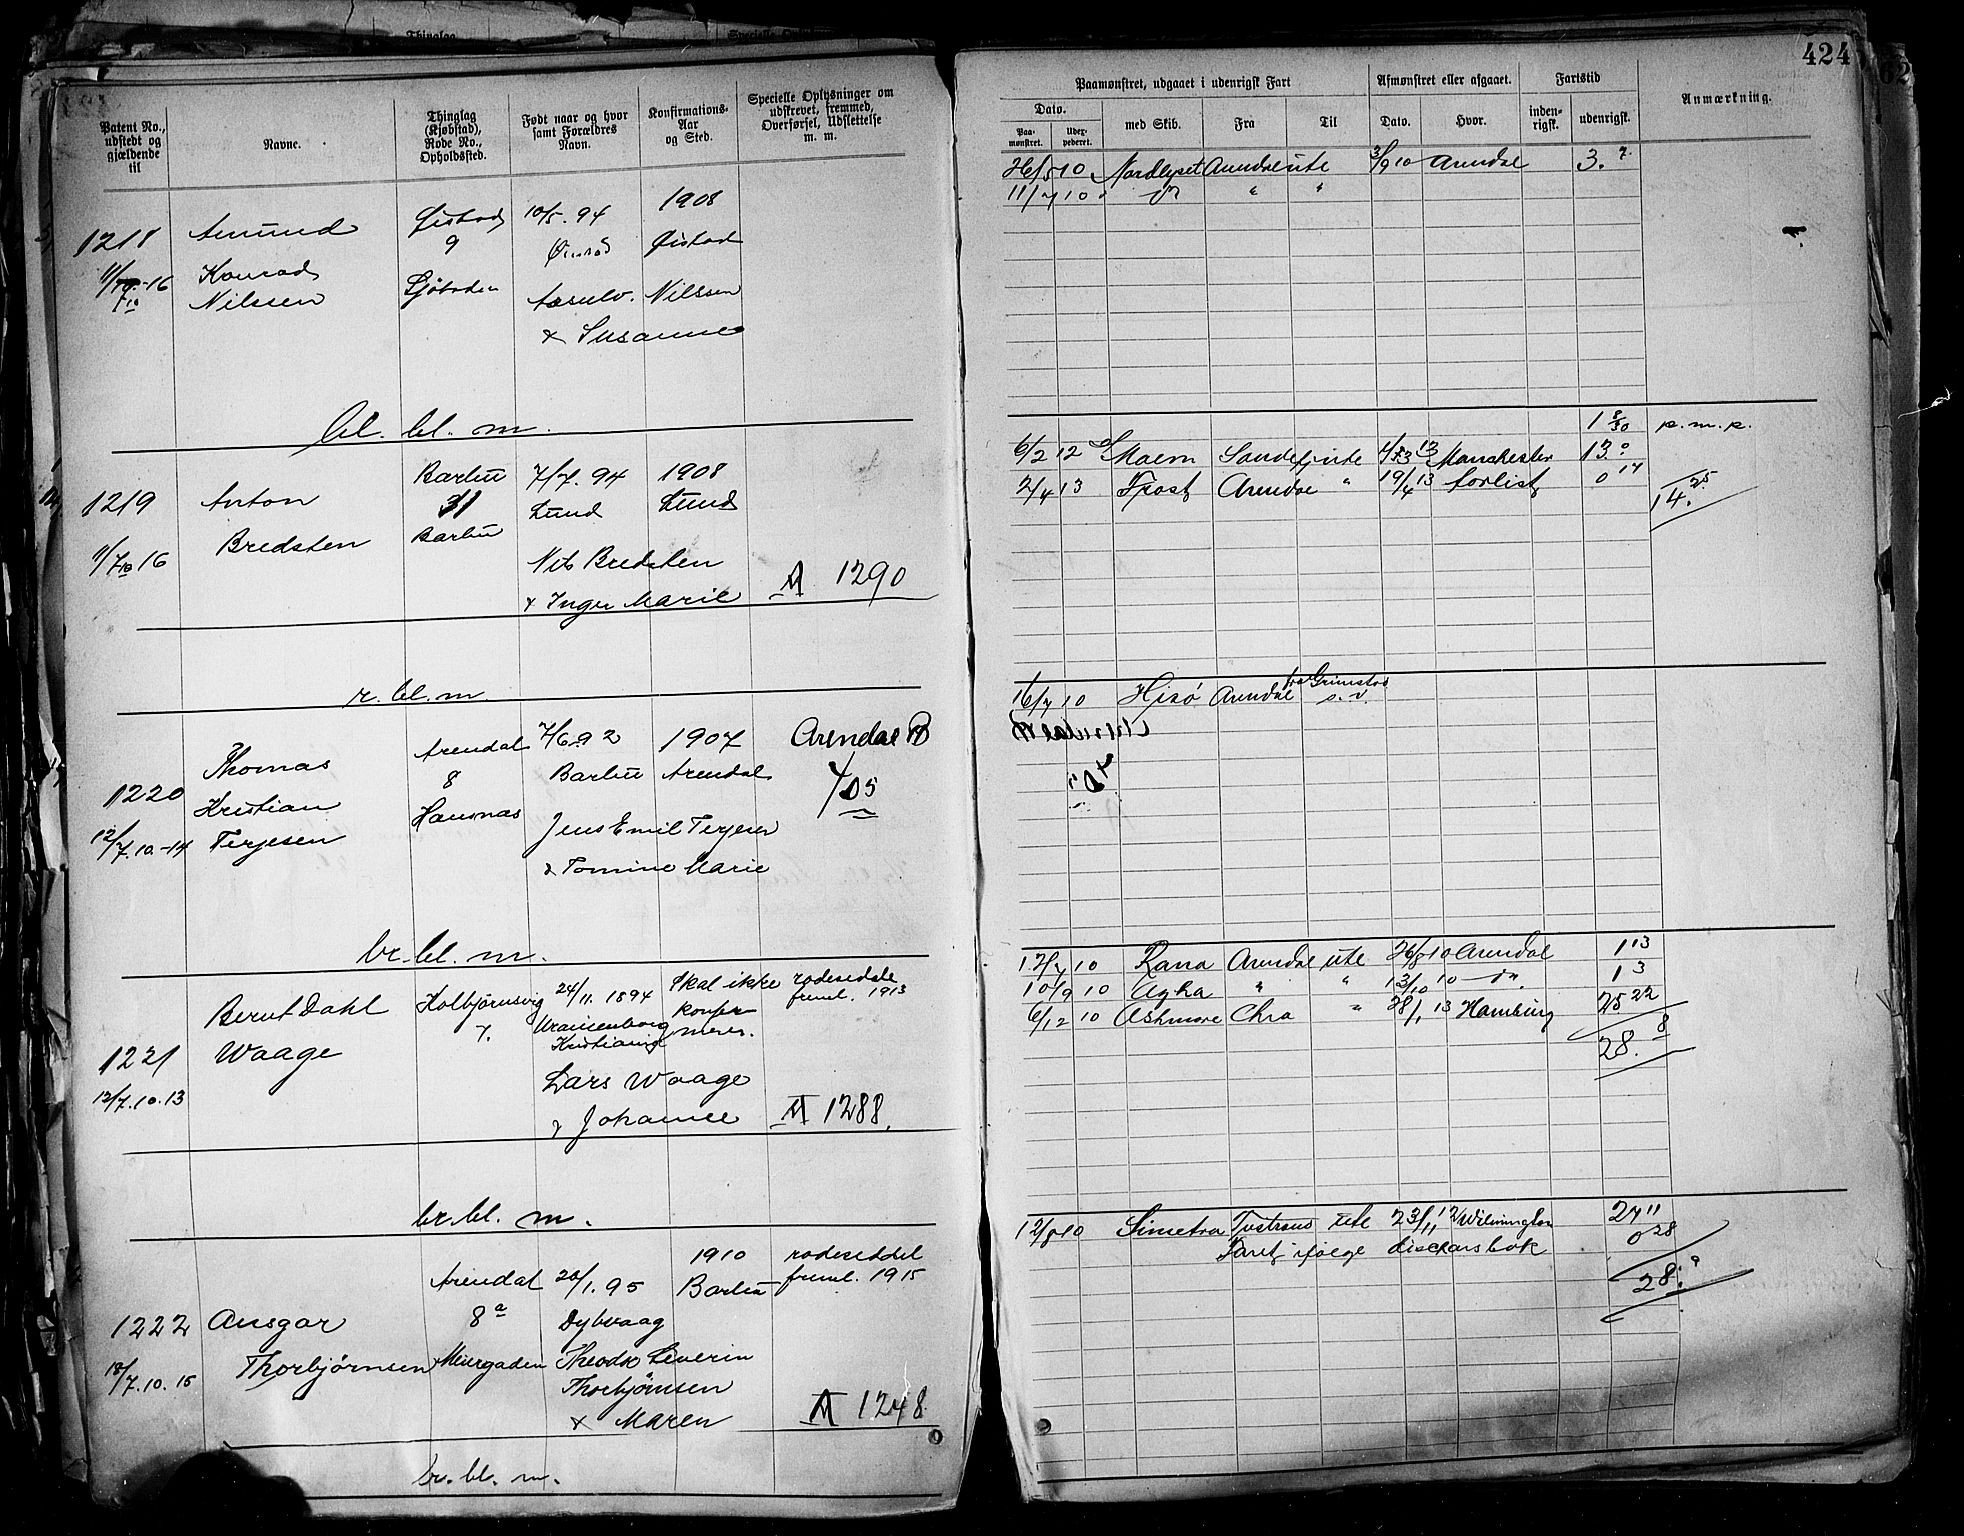 424
Patent No., udstedt og gjældende til
Navne.
Thinglag (Kjøbstad), Rode No., Opholdssted.
Født naar og hvor samt Forældres Navn.
Konfirmations-Aar og Sted.
Specielle Oplysninger om udskrevet, fremmed, Overførsel, Udslettelse m. m.
Paamønstret, udgaaet i udenrigsk Fart
Afmønstret eller afgaaet.
Fartstid
Anmærkning.
Dato.
med Skib.
Fra
Til
Dato.
Hvor.
inden-rigsk.
udenrigsk.
Paa-mønstret.
26/5 10 Nordlyset Arendal ute 3/9 10 Arendal 3.
11/7 10 " "
1218
Amund
Konrad
Nilssen
9
10/5. 94
1908
Øistad
Nilssen
& Susanne
bl. bl. m.
1219
11/7 10 16
Anton
Bredsten
Barbu
31
Barbu
7/7. 94
Lund
1908
Lund
Nils Bredsten
& Inger Marie
A 1290
1 8/30 p. m. p.
6/2 12
Manchester 13 0
2/4 13 Frost Arendal " 19/4 13 forlist 0 17
14. 25
r. bl. m.
1220
12/7. 10-14
Thomas
Kristian
Terjesen
Arendal
8
7/6 92
Barbu
1907
Arendal
Jens Emil Terjesen
& Tomine Marie
Arendal B
705
16/7 10 Hisø Arendal fra Grimstad
br. bl. m.
1221
12/7. 10. 13
Bernt Dahl
Waage
Kolbjørnsvig
7.
24/11. 1894
Uranienborg
Kristiania
Skal ikke
konfir
meres.
rodeseddel
freml. 1913
Lars Waage
& Johanne
A 1288.
12/7 10 Rana Arendal ute 26/8 10 Arendal 1 13
10/9 10 Agha " " 13/10 10 1 3
6/12 10 Ashmore Chra " 28/1 13 Hamburg 25 22
28. 8
br. bl. m.
1222
18/7. 10. 15
Ansgar
Thorbjørnsen
Arendal
8 a
20/1. 95
Dybvaag
1910
Barbu
rodeseddel
freml. 1915
Severin
Thorbjørnsen
& Maren
A 1248
12/8 10 Simetra ute 23/11 12 Wilmington 27 11
ifølge 0 28
28.
br. bl. m.